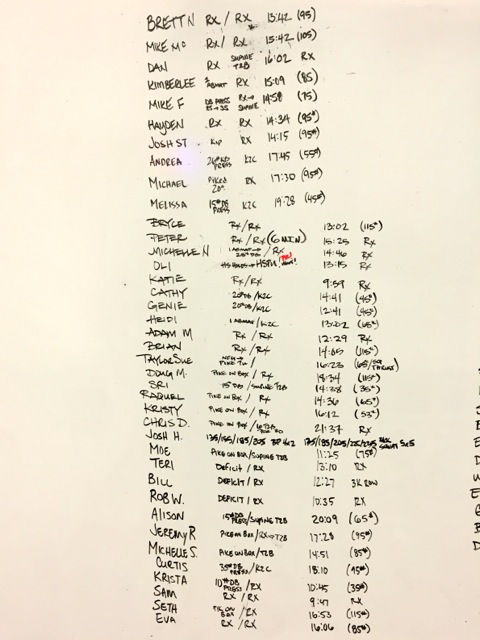 BRETT N RX / RX 13:42 (95)
MIKE Mc RX / RX 15:42 (105)
DAN RX SUPINE T2B 16:02 RX
KIMBERLEE ABMAT RX 15:09 (85)
MIKE F DB PRESS RX→ SUPINE 14:58 (75)
HAYDEN RX RX 14:34 (95#)
JOSH ST KIP RX 14:15 (95#)
ANDREA PRESS K2C 17:45 (55#)
MICHAEL PIKED RX 17:30 (95#)
MELISSA 15# DB PRESS K2C 19:28 (45#)
BRYCE RX / RX 13:02 (115#)
PETER RX / RX (6 MIN) 15:25 RX
MICHELLE N 1 ABMAT→ 25# DB / RX 14:46 RX
OLI HS HOLDS→ HSPU! PR! 13:15 RX
KATIE RX / RX 9:59 RX
CATHY 20# DB / K2C 14:41 (45#)
GENIE 20# DB / K2C 12:41 (45#)
HEIDI 1 ABMAT / K2C 13:02 (65#)
ADAM M RX / RX 12:29 RX
BRIAN RX / RX 14:05 (115#)
TAYLOR SUE 16:23 (65/
DOUG M. PIKE ON BOX / RX 18:34 (115#)
SRI 15# DB / SUPINE T2B 14:38 (35#)
RAQUEL PIKE ON BOX / RX 14:36 (65#)
KRISTY PIKE ON BOX / RX 16:12 (53#)
CHRIS D. PIKE ON BOX / 21:37 RX
JOSH H. 135/155/185/205 BP 4x2 175/185/205/225/235 BACK SQUAT 5x5
MOE PIKE ON BOX / SUPINE T2B 11:25 (75#)
TERI DEFICIT / RX 13:10 RX
BILL DEFICIT / RX 12:27 3K ROW
ROB W. DEFICIT / RX 10:35 RX
ALISON 15# DB PRESS / SUPINE T2B 20:09 (65#)
JEREMY R PIKE ON BOX / RX→T2B 17:28 (95#)
MICHELLE S. PIKE ON BOX / T2B 14:51 (85#)
CURTIS 35# DB PRESS / K2C 18:10 (95#)
KRISTA 10# DB PRESS / RX 10:45 (35#)
SAM RX / RX 9:47 RX
SETH PIKE ON BOX / RX 16:53 (115#)
EVA RX / RX 16:06 (85#)